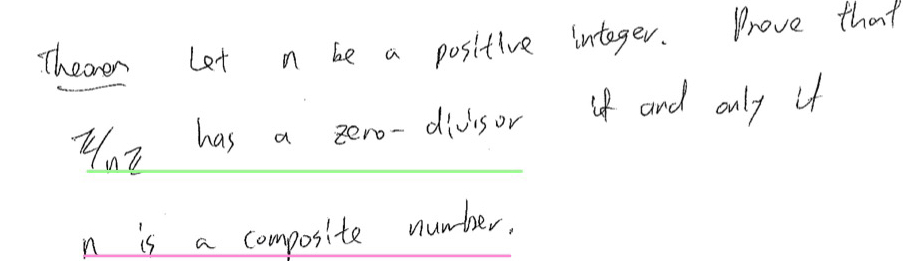 Theorem Let n be a positive integer. Prove that
ℤ/nℤ has a zero-divisor if and only if
n is a composite number.